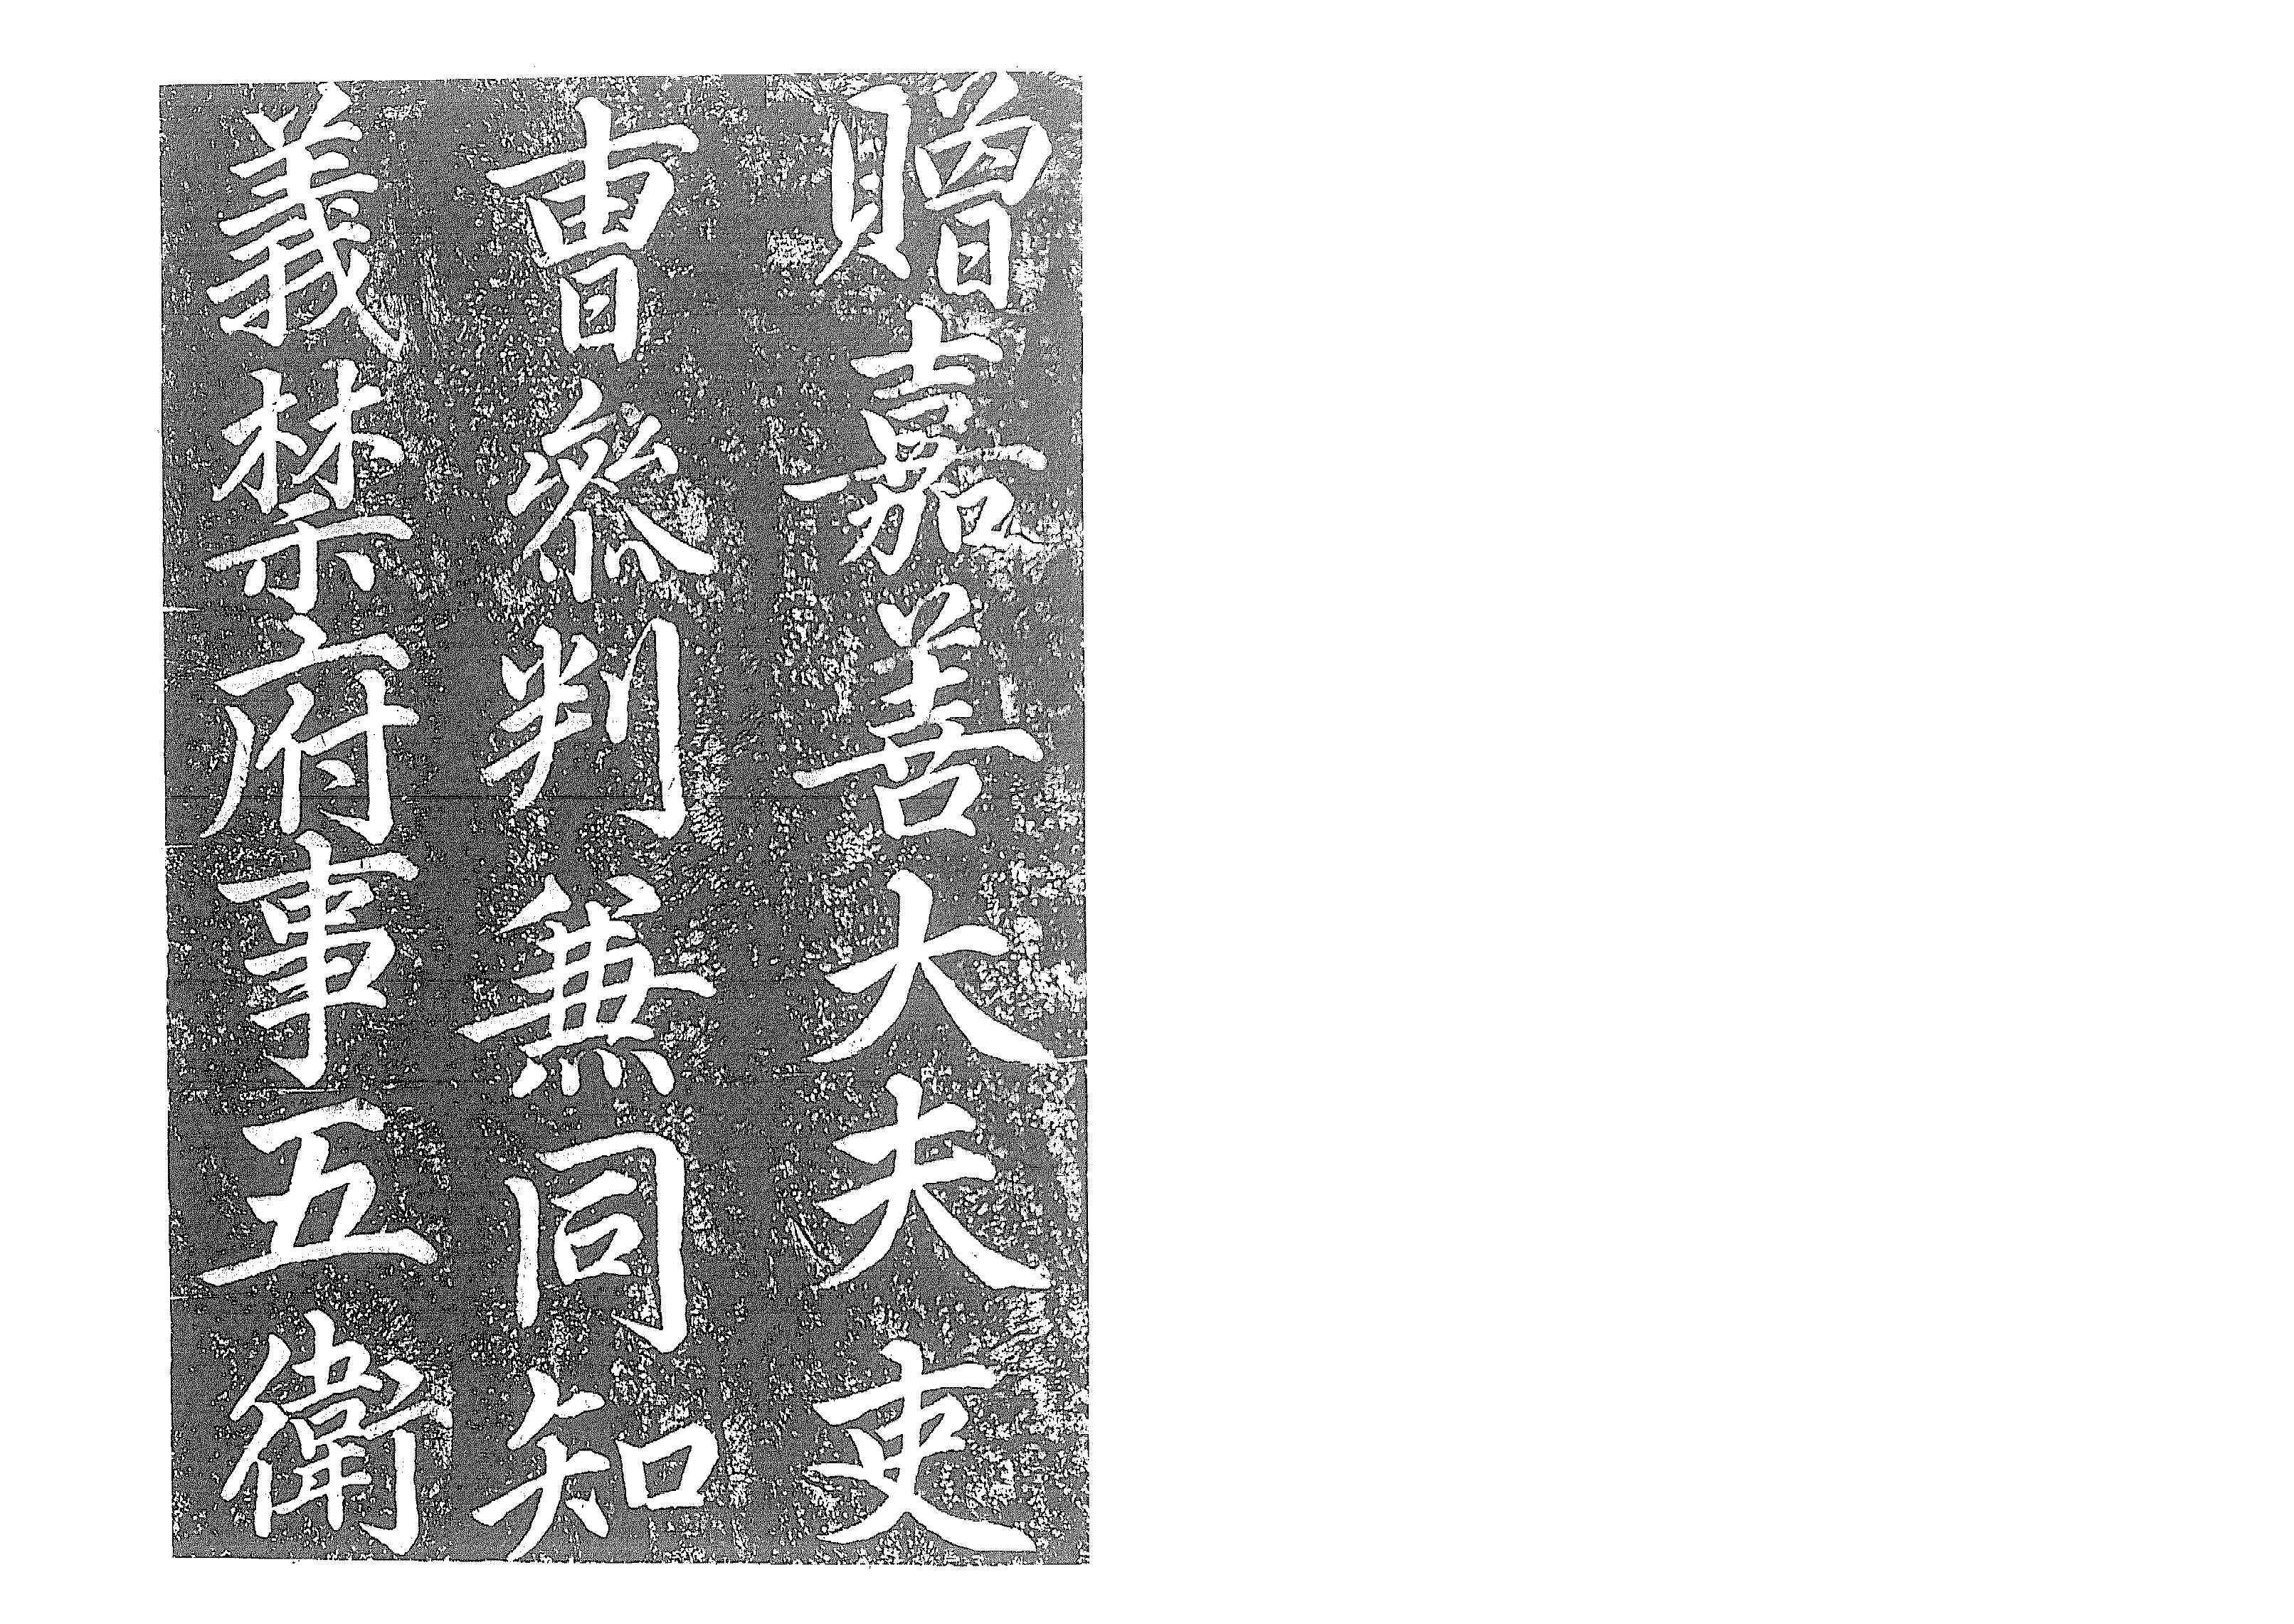 贈嘉善大夫吏
曺參判兼同知
義禁府事五衛